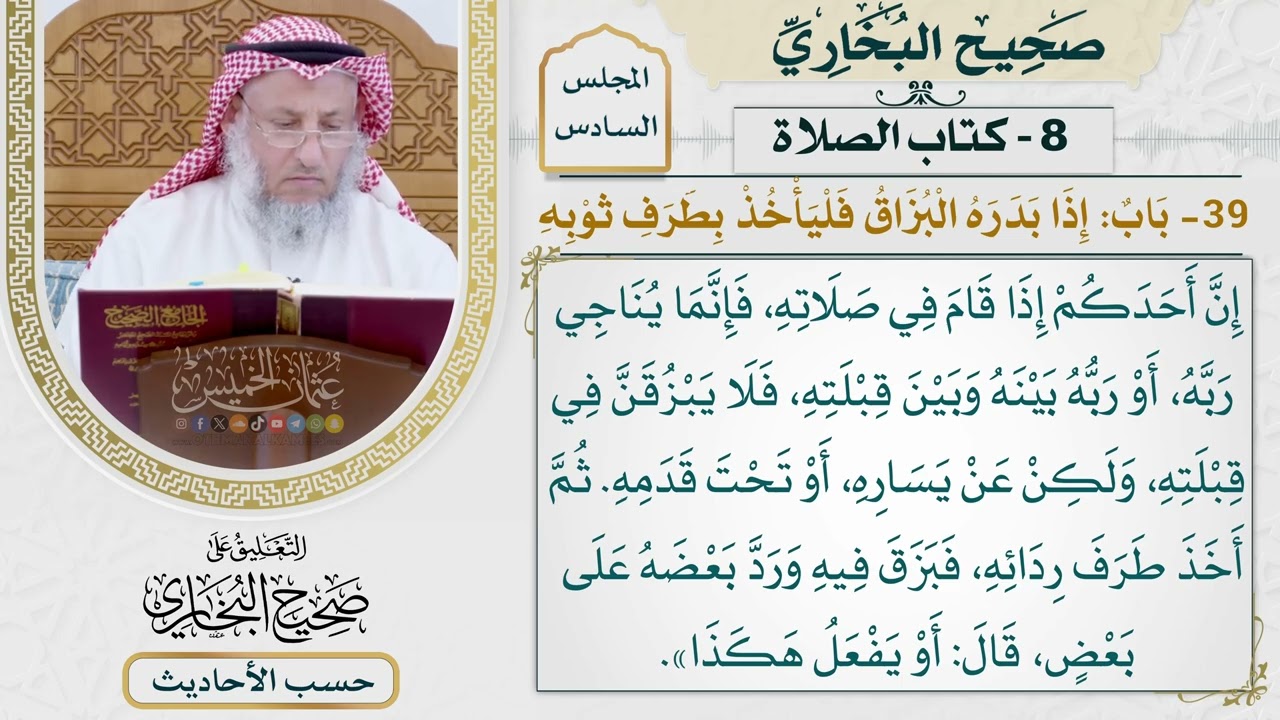 صَحِيح البُخَارِيِّ
8 - كتاب الصلاة
المجلس
السادس
39- بَابٌ: إِذَا بَدَرَهُ الْبُزَاقُ فَلْيَأْخُذْ بِطَرَفِ ثَوْبِهِ
إِنَّ أَحَدَكُمْ إِذَا قَامَ فِي صَلَاتِهِ، فَإِنَّمَا يُنَاجِي
رَبَّهُ، أَوْ رَبُّهُ بَيْنَهُ وَبَيْنَ قِبْلَتِهِ، فَلَا يَبْزُقَنَّ فِي
قِبْلَتِهِ، وَلَكِنْ عَنْ يَسَارِهِ، أَوْ تَحْتَ قَدَمِهِ. ثُمَّ
أَخَذَ طَرَفَ رِدَائِهِ، فَبَزَقَ فِيهِ وَرَدَّ بَعْضَهُ عَلَى
بَعْضٍ، قَالَ: أَوْ يَفْعَلُ هَكَذَا».
الجامع الصحيح
عُثمان الخميس
التَّعْلِيقُ عَلَى
صَحِيح البُخَارِي
حسب الأحاديث